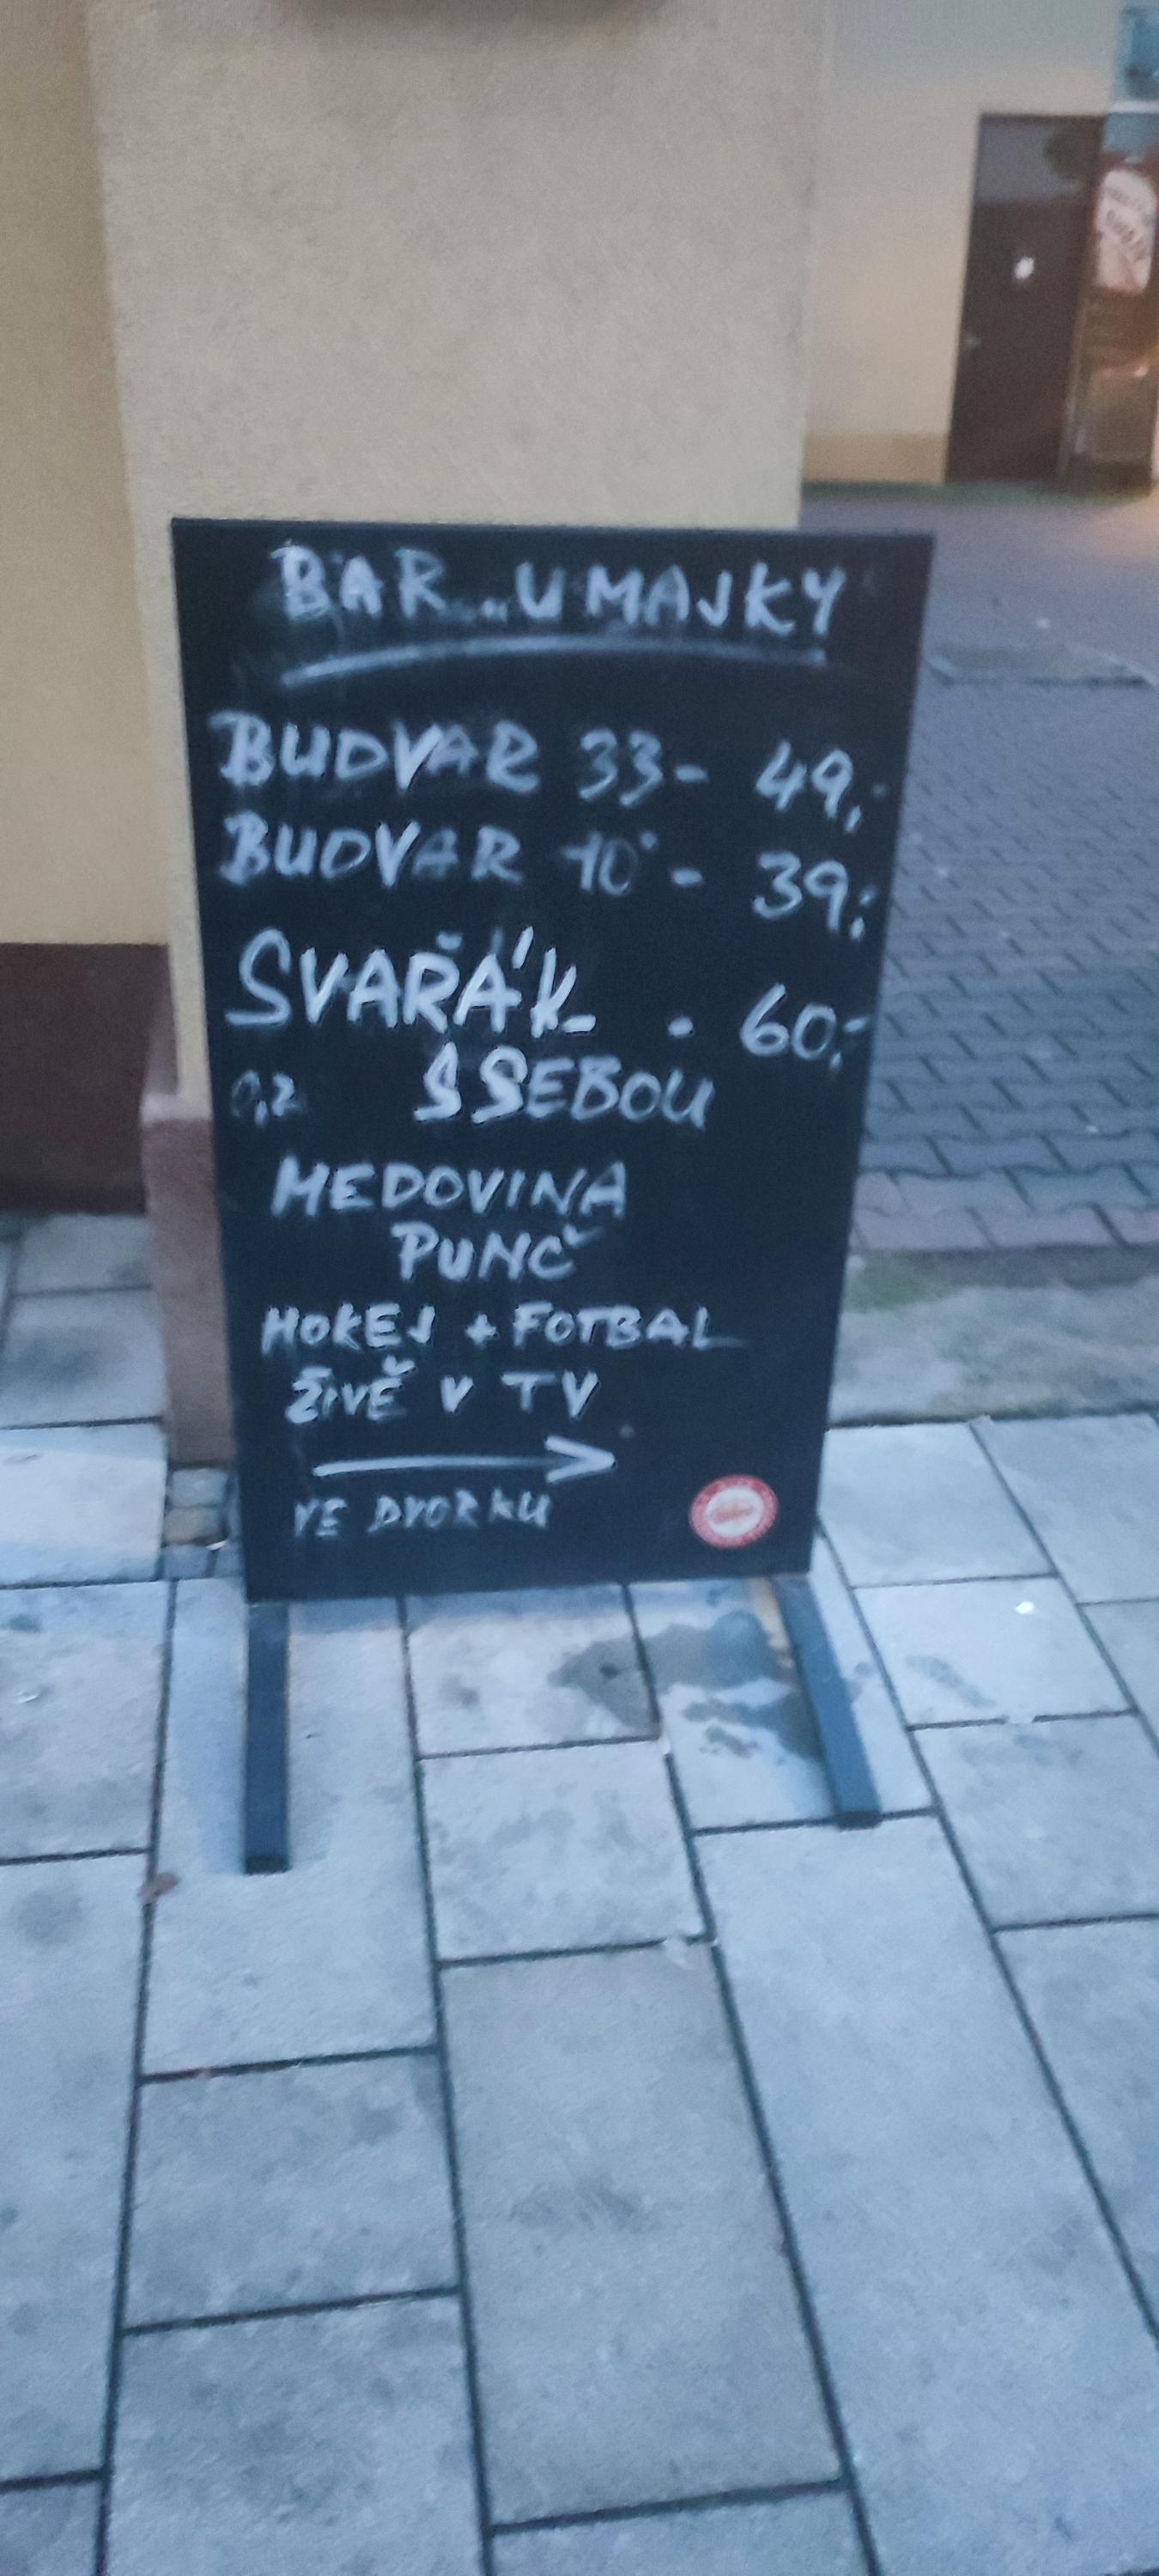 BAR „U MAJKY
BUDVAR 33 - 49,-
BUDVAR 10° - 39,-
SVAŘÁK - 60,-
0,2 S SEBOU
MEDOVINA
PUNČ
HOKEJ + FOTBAL
ŽIVĚ V TV
VE DVORKU